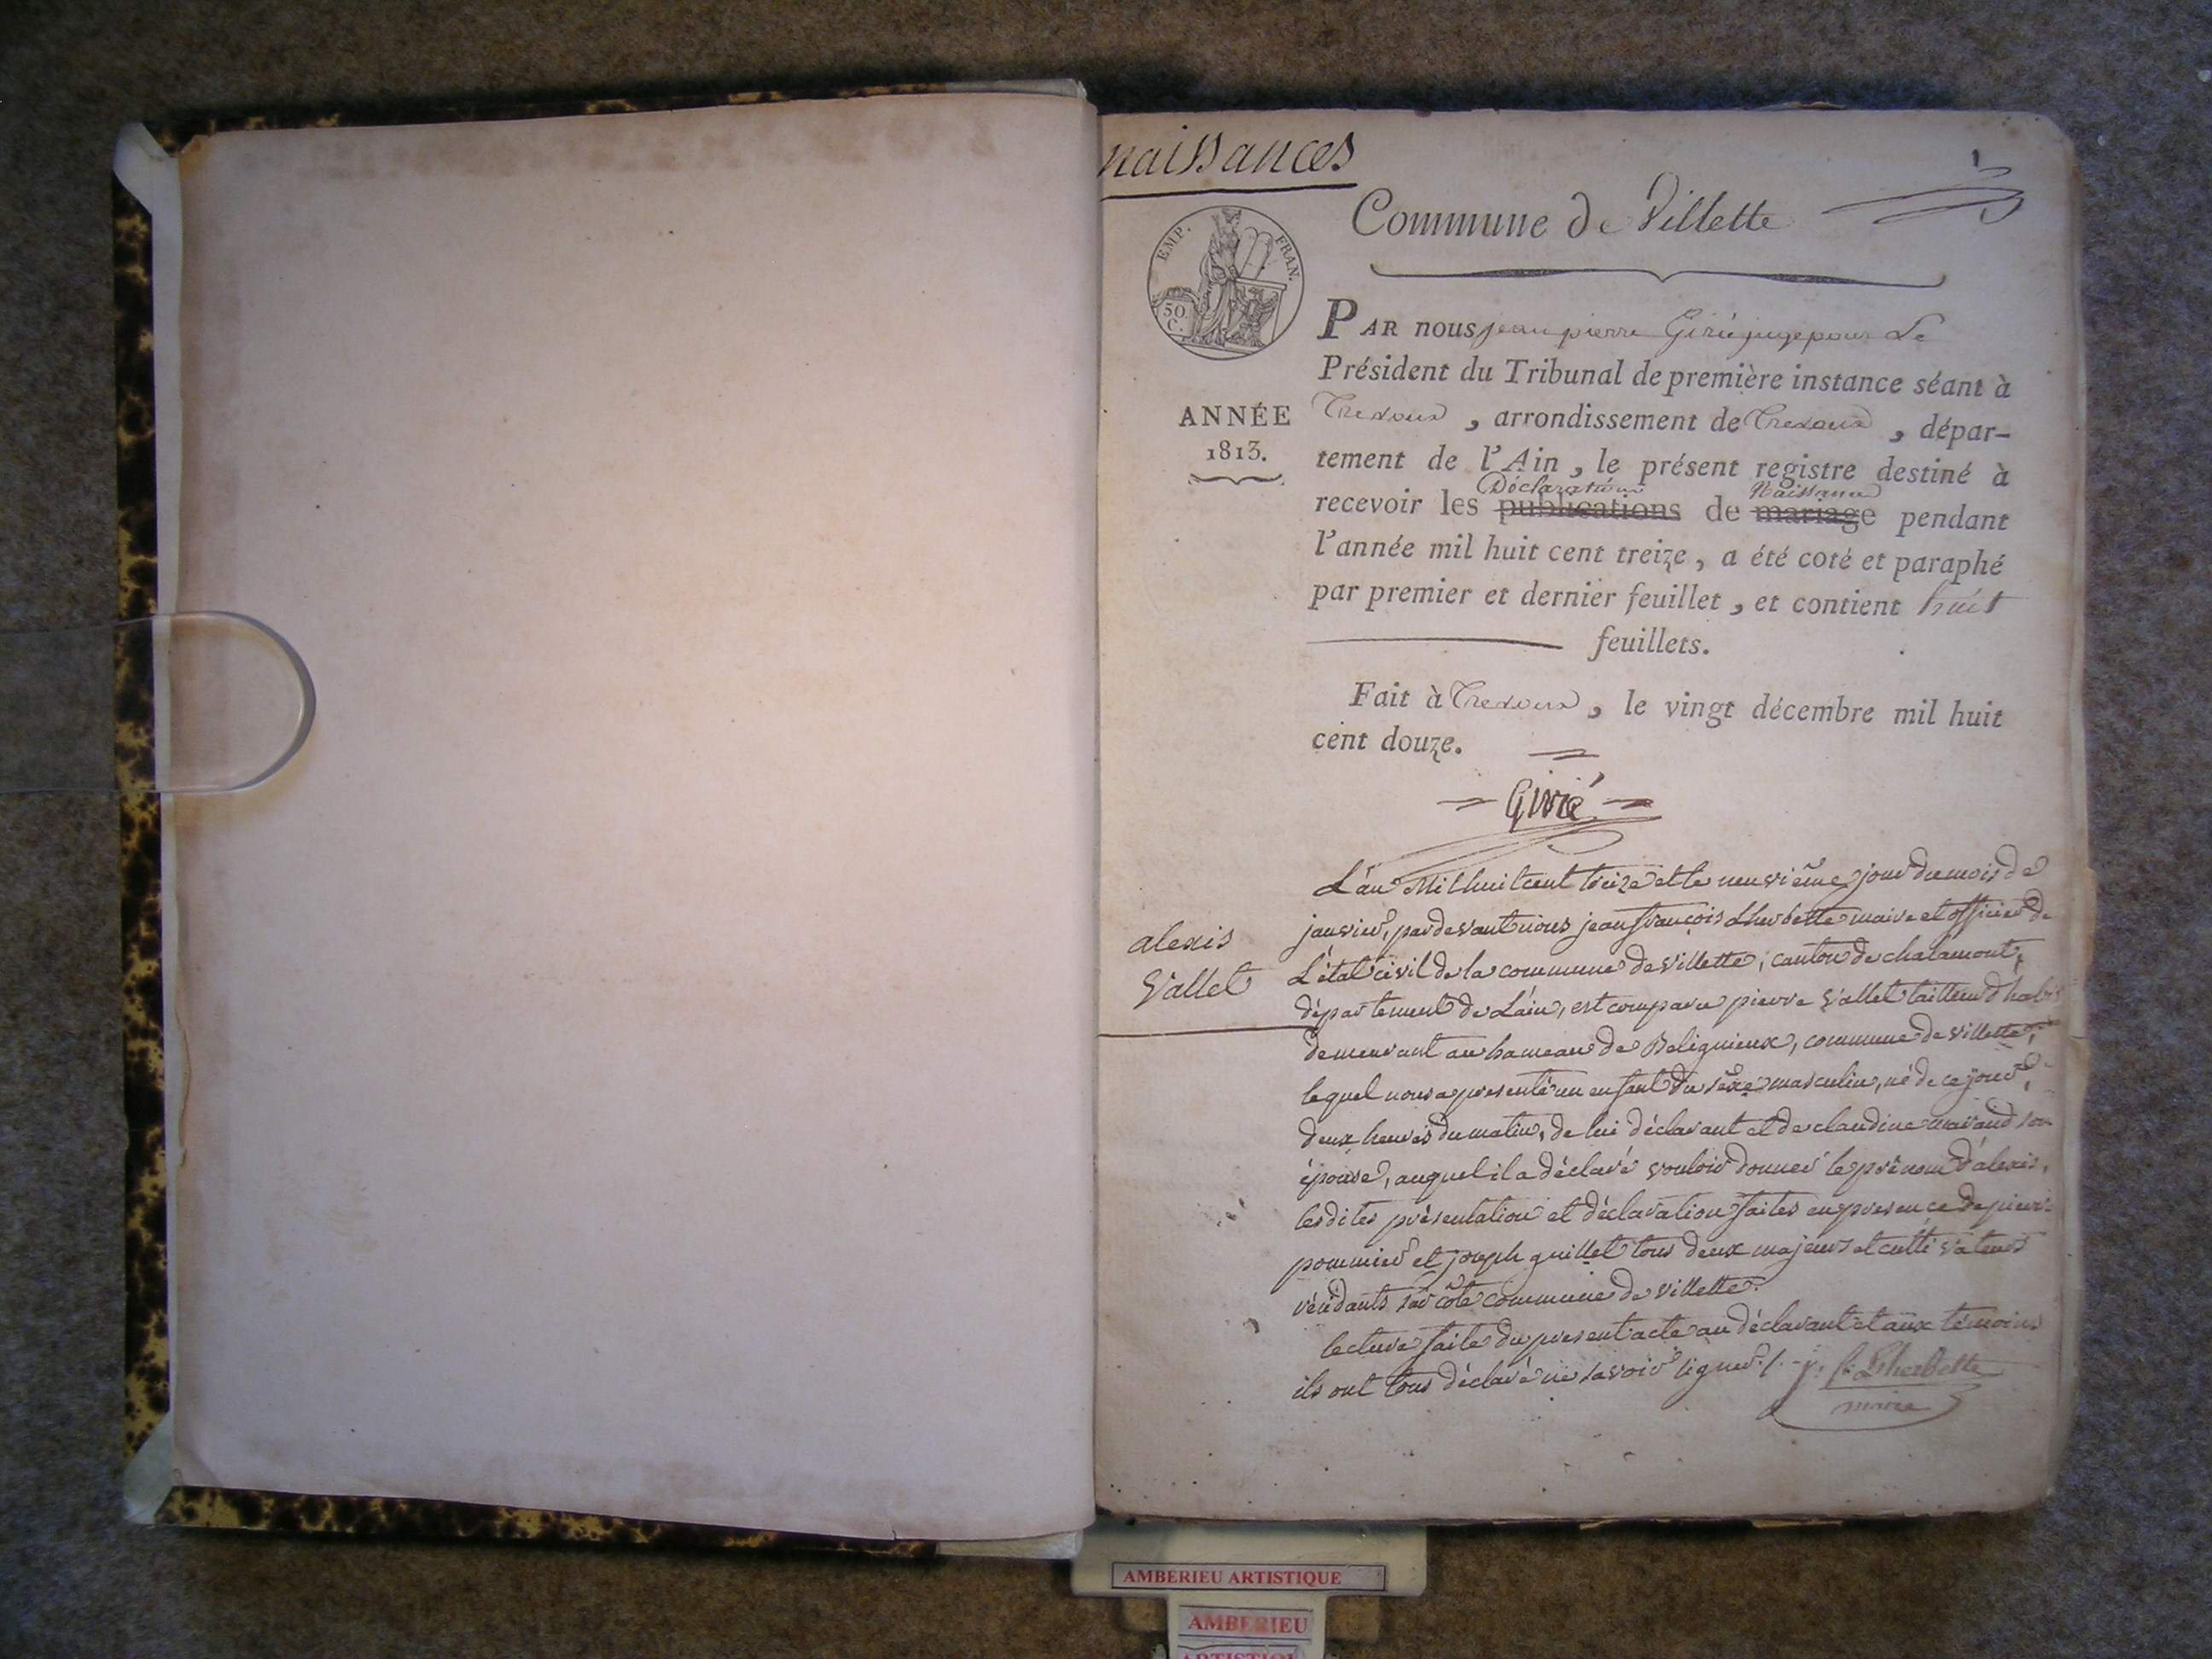 naissances
1
Commune de Villette
EMP. FRAN.
50
C.
PAR nous jean pierre Girié juge pour Le
Président du Tribunal de première instance séant à
ANNÉE
1813.
Trevoux, arrondissement de Trevoux, dépar-
tement de l'Ain, le présent registre destiné à
Déclarations Naissance
recevoir les publications de mariage pendant
l'année mil huit cent treize, a été coté et paraphé
par premier et dernier feuillet, et contient huit
feuillets.
Fait à Trevoux, le vingt décembre mil huit
cent douze.
Girié
L'an Mil huit cent treize et le neuvième jour du mois de
janvier, pardevant nous jean françois Lherbette maire et officier de
alexis
Vallet
L'état civil de la commune de Villette, canton de chalamont,
département de L'ain, est comparu pierre Vallet tailleur d'habits
demeurant au hameau de Belignieux, commune de villette,
lequel nous a presenté un enfant du sexe masculin, né de ce jour,
deux heures du matin, de lui déclarant et de claudine marand son
épouse, auquel il a déclaré vouloir donner le prénom d'alexis,
lesdites présentation et déclaration faites en presence de pierre
pommier et joseph guillet tous deux majeurs et cultivateurs
résidants commune de villette.
lecture faite du present acte au déclarant et aux témoins
ils ont tous déclaré ne savoir signer ./. j. f. Lherbette
maire
AMBERIEU ARTISTIQUE
AMBERIEU
ARTISTIQU